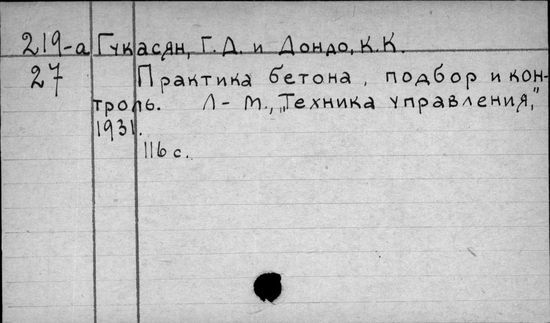 219-а Гукасян, Г.Д. и Дондо, К.К.
27 Практика бетона, подбор и кон-
троль. Л-М., „Техника управления,"
1931.
116 с.